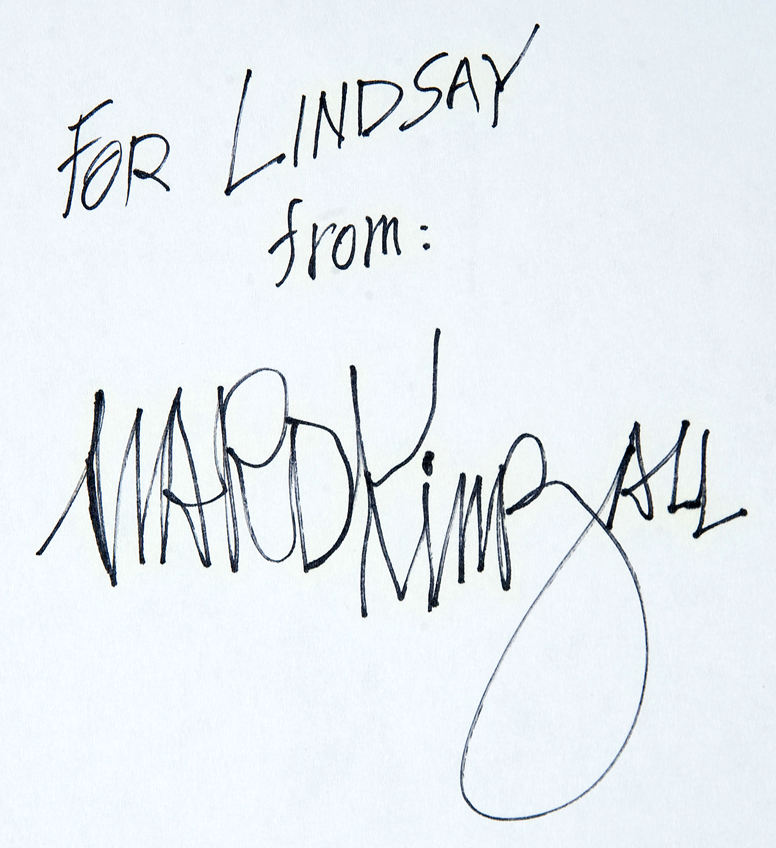 FOR LINDSAY
from:
WARD KimBALL